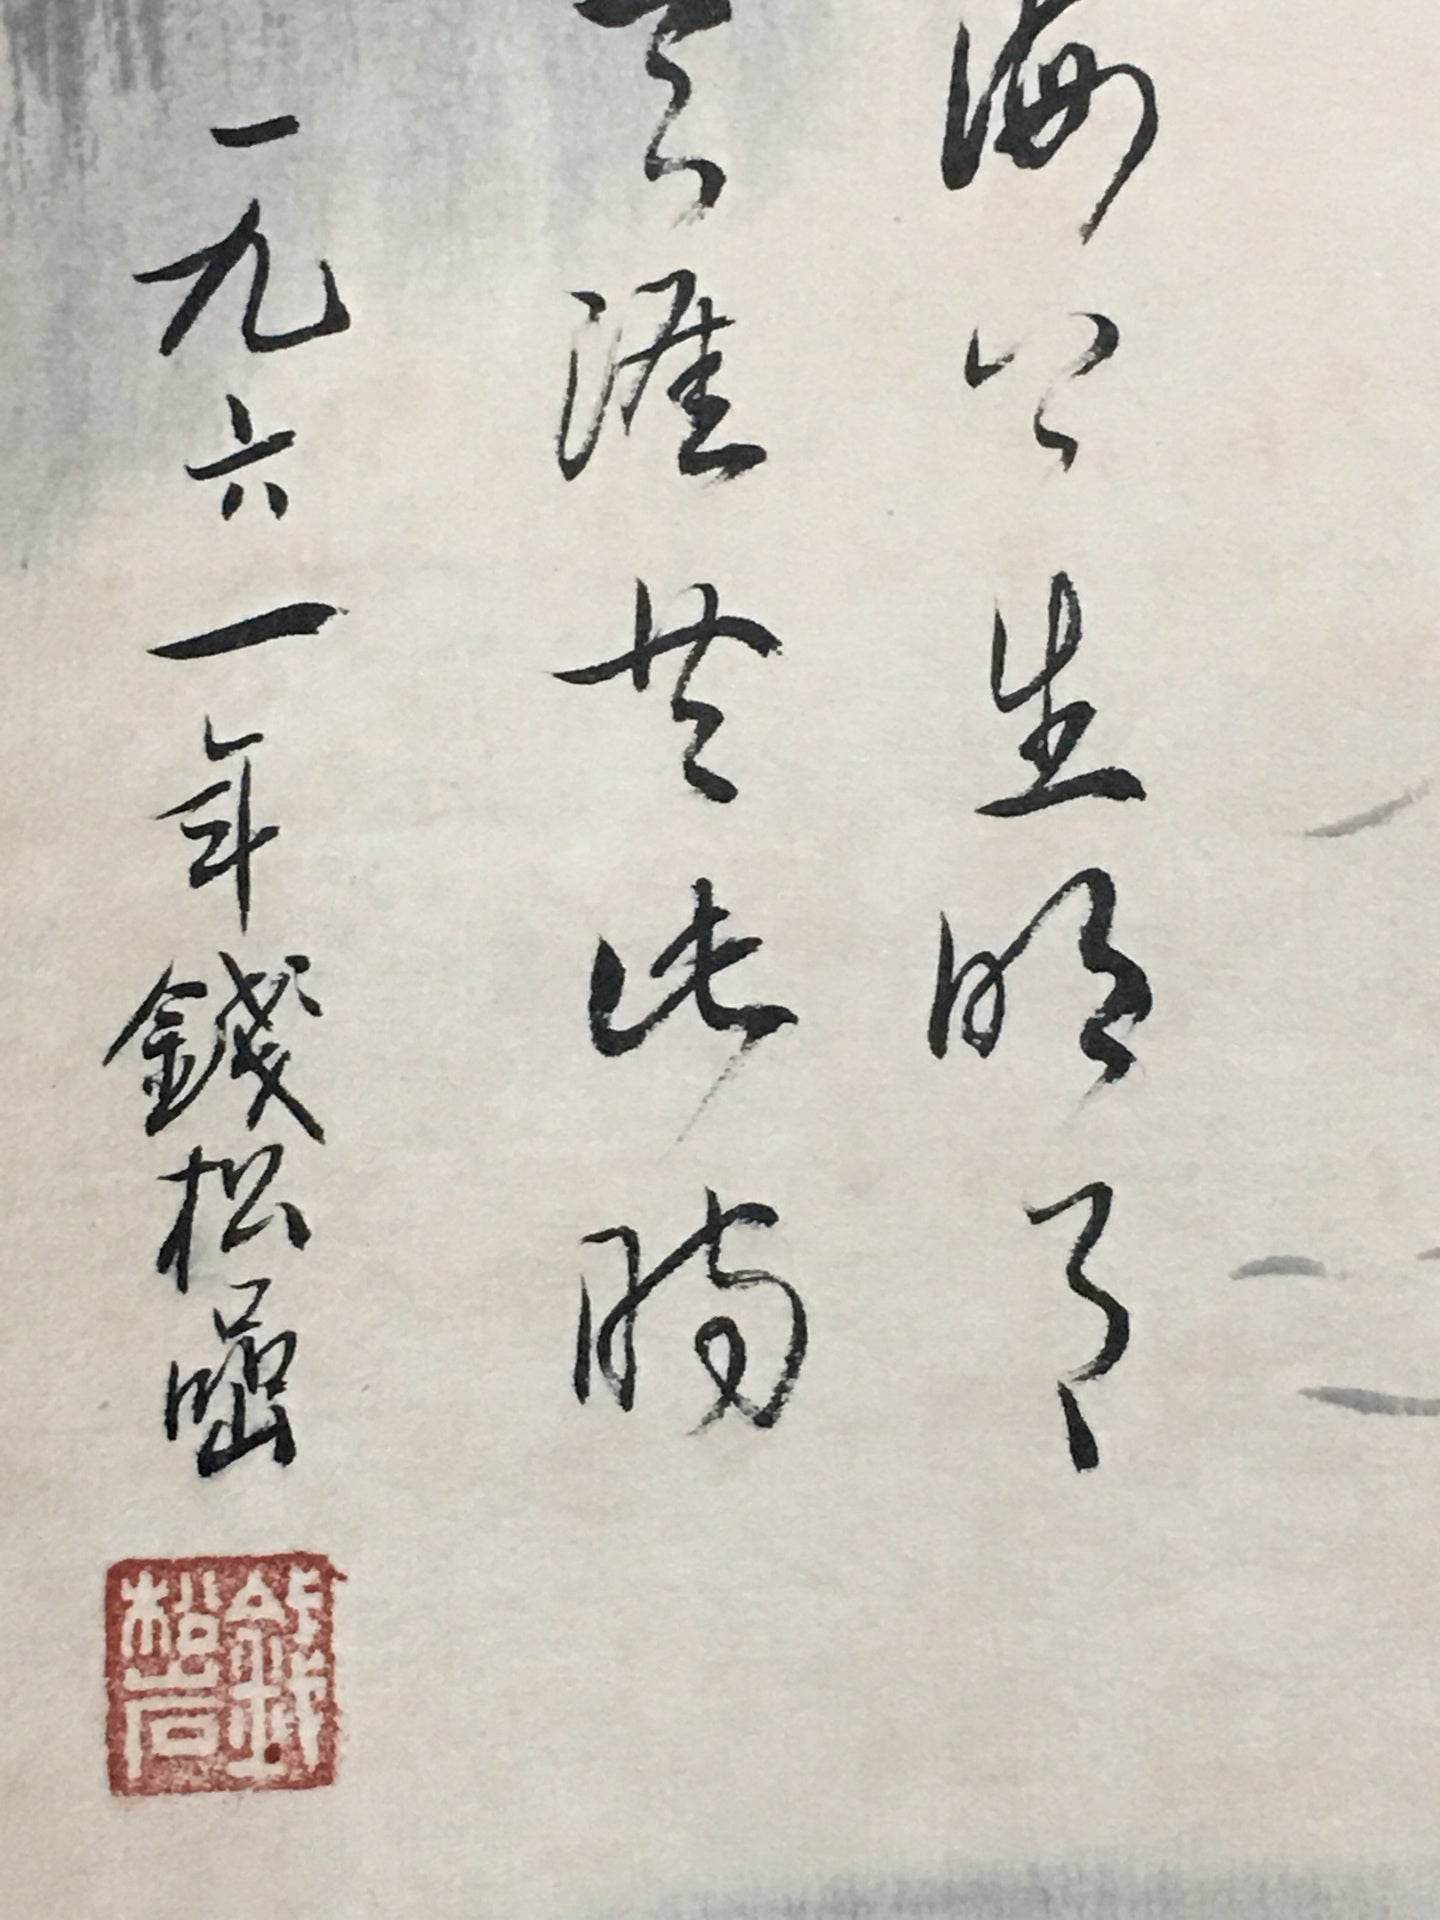 海上生明月
天涯共此時
一九六一年錢松嵒
錢松岩